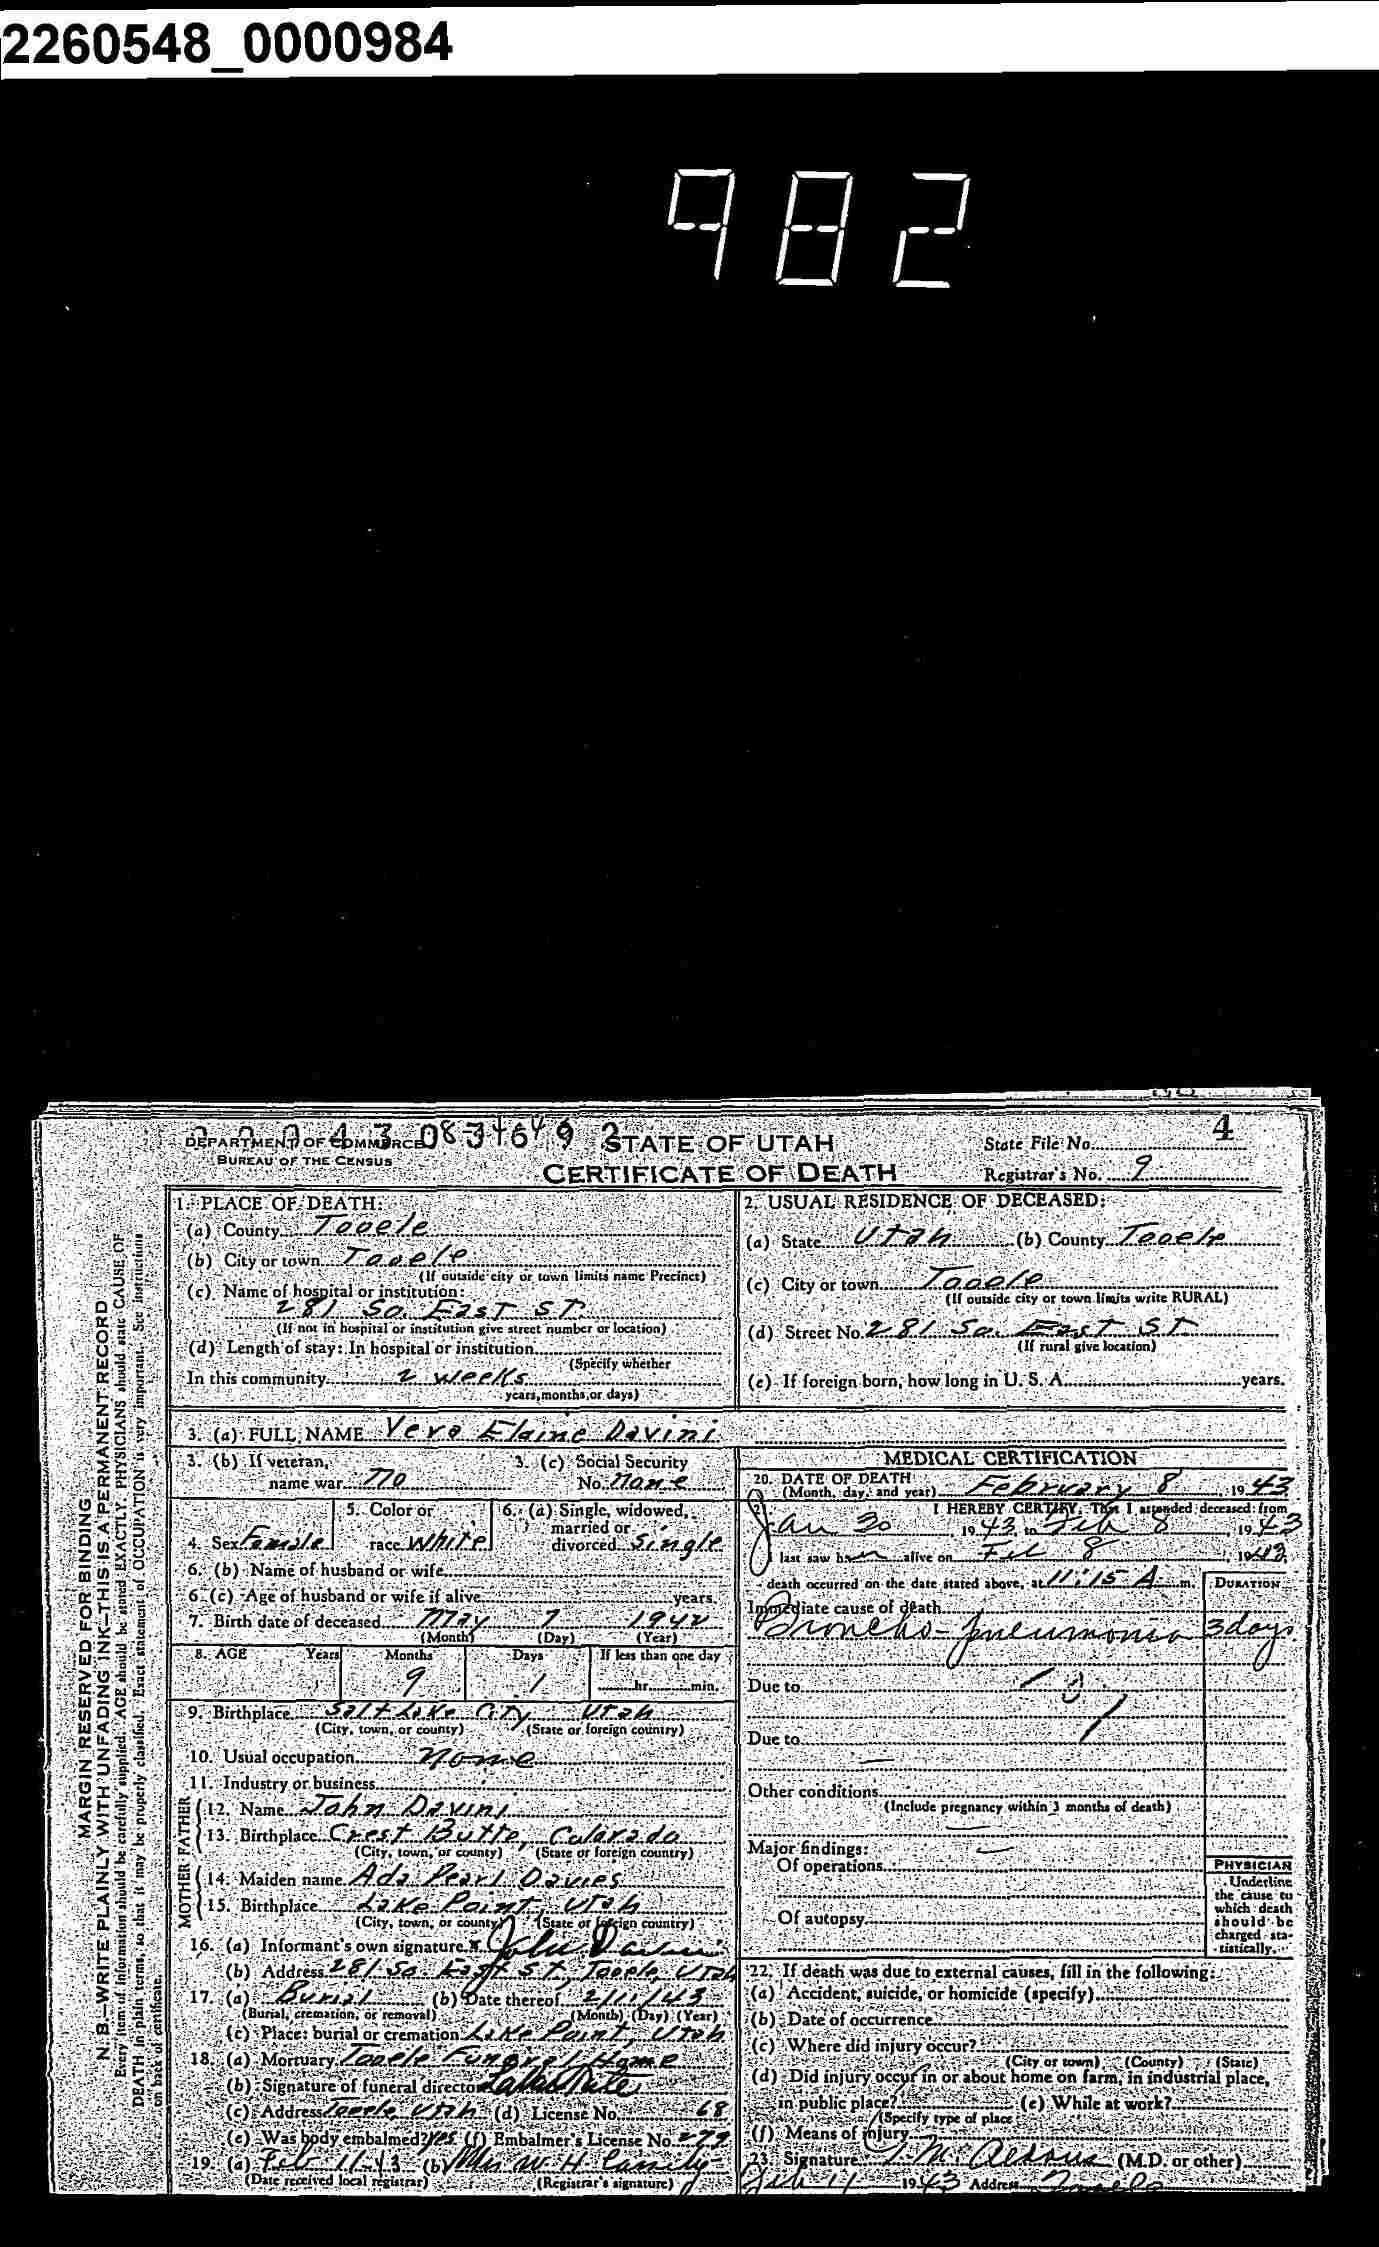 2260548_0000984
982
DEPARTMENT OF COMMERCE
BUREAU OF THE CENSUS
STATE OF UTAH
CERTIFICATE OF DEATH
State File No. 4
Registrar's No. 9
MARGIN RESERVED FOR BINDING
N. B.—WRITE PLAINLY WITH UNFADING INK—THIS IS A PERMANENT RECORD
Every item of information should be carefully supplied. AGE should be stated EXACTLY. PHYSICIANS should state CAUSE OF
DEATH in plain terms, so that it may be properly classified. Exact statement of OCCUPATION is very important. See instructions
on back of certificate.
1. PLACE OF DEATH:
(a) County Tooele
(b) City or town Tooele
(If outside city or town limits name Precinct)
(c) Name of hospital or institution:
281 So. East St.
(If not in hospital or institution give street number or location)
(d) Length of stay: In hospital or institution
(Specify whether
In this community 2 weeks
years, months, or days)
2. USUAL RESIDENCE OF DECEASED:
(a) State Utah (b) County Tooele
(c) City or town Tooele
(If outside city or town limits write RURAL)
(d) Street No. 281 So. East St.
(If rural give location)
(e) If foreign born, how long in U. S. A. years.
3. (a) FULL NAME Vera Elaine Davini
3. (b) If veteran,
name war No
3. (c) Social Security
No. None
4. Sex Female
5. Color or
race White
6. (a) Single, widowed,
married or
divorced Single
6. (b) Name of husband or wife
6. (c) Age of husband or wife if alive years.
7. Birth date of deceased May 7 1942
(Month) (Day) (Year)
8. AGE Years Months Days If less than one day
9 1 hr. min.
9. Birthplace Salt Lake City Utah
(City, town, or county) (State or foreign country)
10. Usual occupation None
11. Industry or business
FATHER
12. Name John Davini
13. Birthplace Crest Butte, Colorado
(City, town, or county) (State or foreign country)
MOTHER
14. Maiden name Ada Pearl Davies
15. Birthplace Lake Point, Utah
(City, town, or county) (State or foreign country)
16. (a) Informant's own signature John Davini
(b) Address 281 So East St, Tooele, Utah
17. (a) Burial (b) Date thereof 2/11/43
(Burial, cremation, or removal) (Month) (Day) (Year)
(c) Place: burial or cremation Lake Point, Utah
18. (a) Mortuary Tooele Funeral Home
(b) Signature of funeral director
(c) Address Tooele, Utah (d) License No. 68
(e) Was body embalmed? Yes (f) Embalmer's License No. 279
19. (a) Feb 11-43 (b) Mrs W. H. Cassity
(Date received local registrar) (Registrar's signature)
MEDICAL CERTIFICATION
20. DATE OF DEATH
(Month, day, and year) February 8, 1943
21. I HEREBY CERTIFY, That I attended deceased from
Jan 30, 1943, to Feb 8, 1943
I last saw her alive on Feb 8, 1943
death occurred on the date stated above, at 11:15 A. m.
DURATION
Immediate cause of death
Broncho-pneumonia 3 days
Due to
Due to
Other conditions
(Include pregnancy within 3 months of death)
Major findings:
Of operations
Of autopsy
PHYSICIAN
Underline
the cause to
which death
should be
charged sta-
tistically.
22. If death was due to external causes, fill in the following:
(a) Accident, suicide, or homicide (specify)
(b) Date of occurrence
(c) Where did injury occur?
(City or town) (County) (State)
(d) Did injury occur in or about home on farm, in industrial place,
in public place? (e) While at work?
(Specify type of place
(f) Means of injury
23. Signature (M.D. or other)
Feb 11 1943 Address Tooele